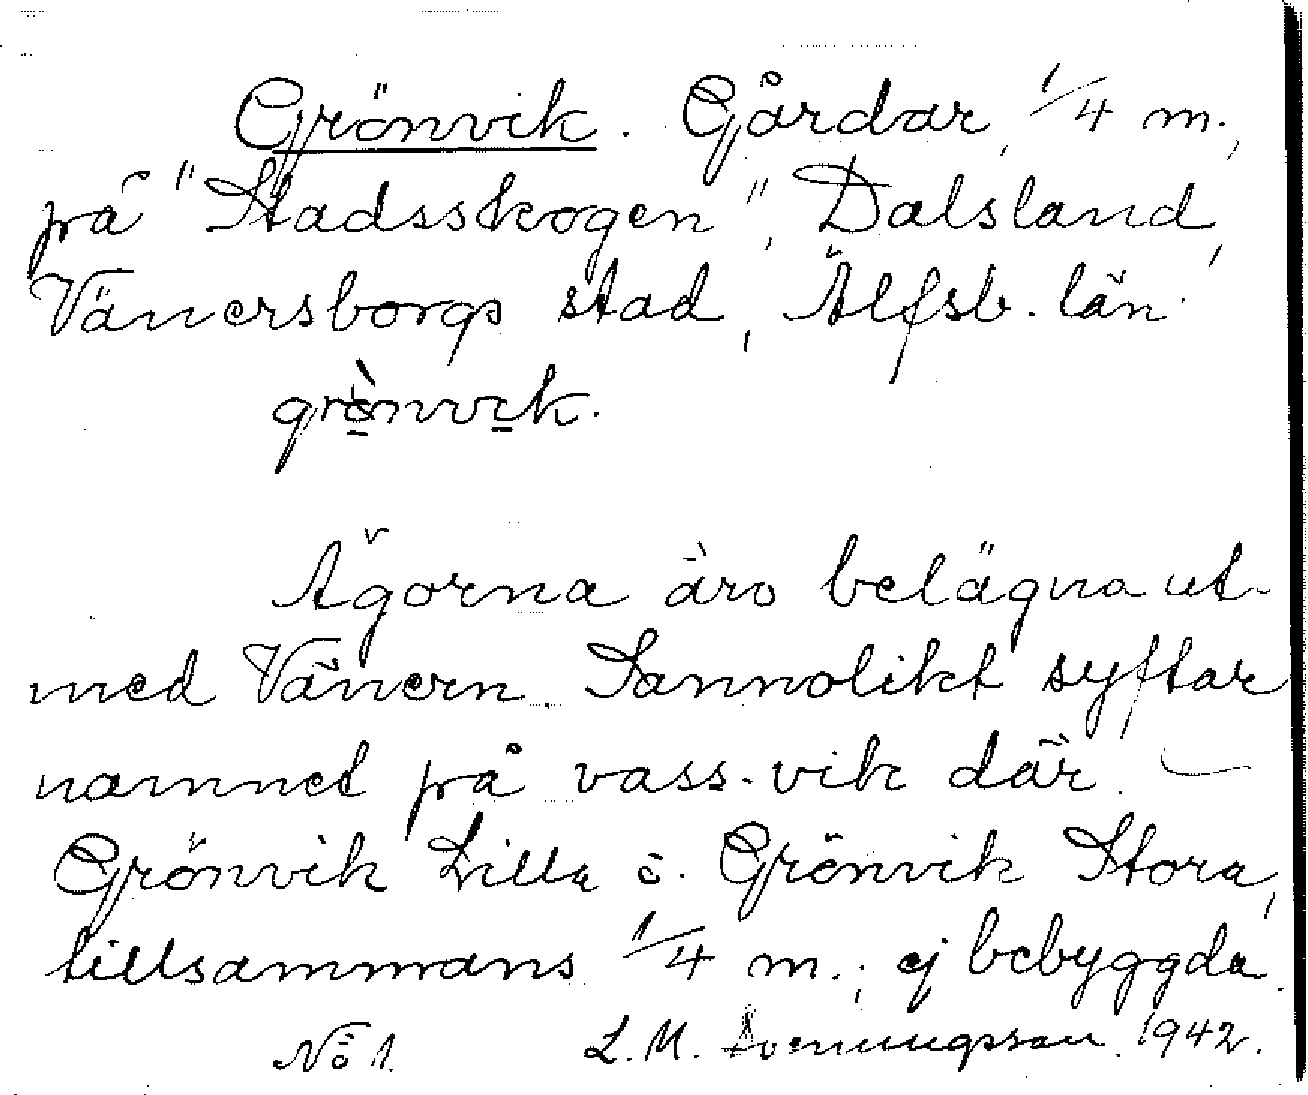 Grönvik. Gårdar, 1/4 m.,
på "Stadsskogen", Dalsland,
Vänersborgs stad, Älfsb. län.
grö̀nvik.
Ägorna äro belägna ut-
med Vänern. Sannolikt syftar
namnet på vass-vik där. —
Grönvik Lilla o. Grönvik Stora,
tillsammans 1/4 m.; ej bebyggda.
No 1. L. M. 1942.